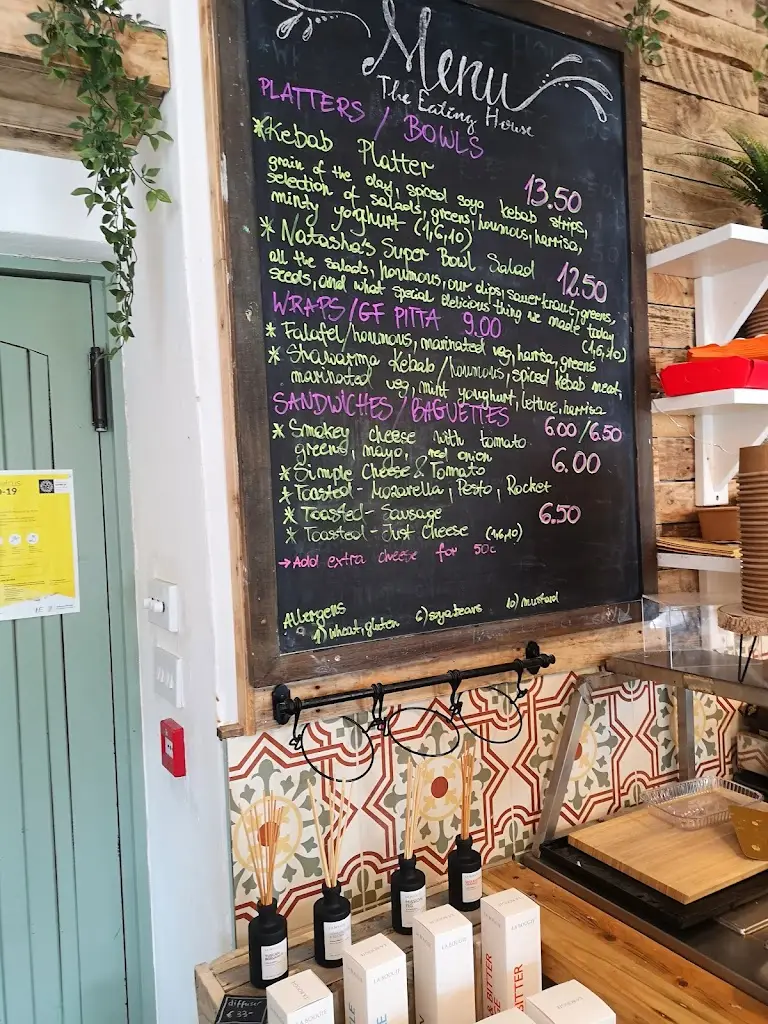 Menu
The Eating House
PLATTERS / BOWLS
*Kebab Platter 13.50
grain of the day, spiced soya kebab strips,
selection of salads, greens, houmous, harrisa,
minty yoghurt (1,6,10)
* Natasha's Super Bowl Salad 12.50
all the salads, houmous, our dips, sauerkraut, greens,
seeds, and what special delicious thing we made today
(1,6,10)
WRAPS/GF PITTA 9.00
* Falafel/houmous, marinated veg, harrisa, greens
* Shawarma Kebab/houmous, spiced kebab meat,
marinated veg, mint youghurt, lettuce, harrisa
SANDWICHES/BAGUETTES 6.00/6.50
* Smokey cheese with tomato
greens, mayo, red onion 6.00
* Simple Cheese & Tomato
* Toasted - Mozarella, Pesto, Rocket
* Toasted - Sausage 6.50
* Toasted - Just Cheese (1,6,10)
→Add extra cheese for 50c
Allergens
1) wheat, gluten 6) soyabeans 10) mustard
-19
diffuser
€33-
LA BOUGIE
BITTER